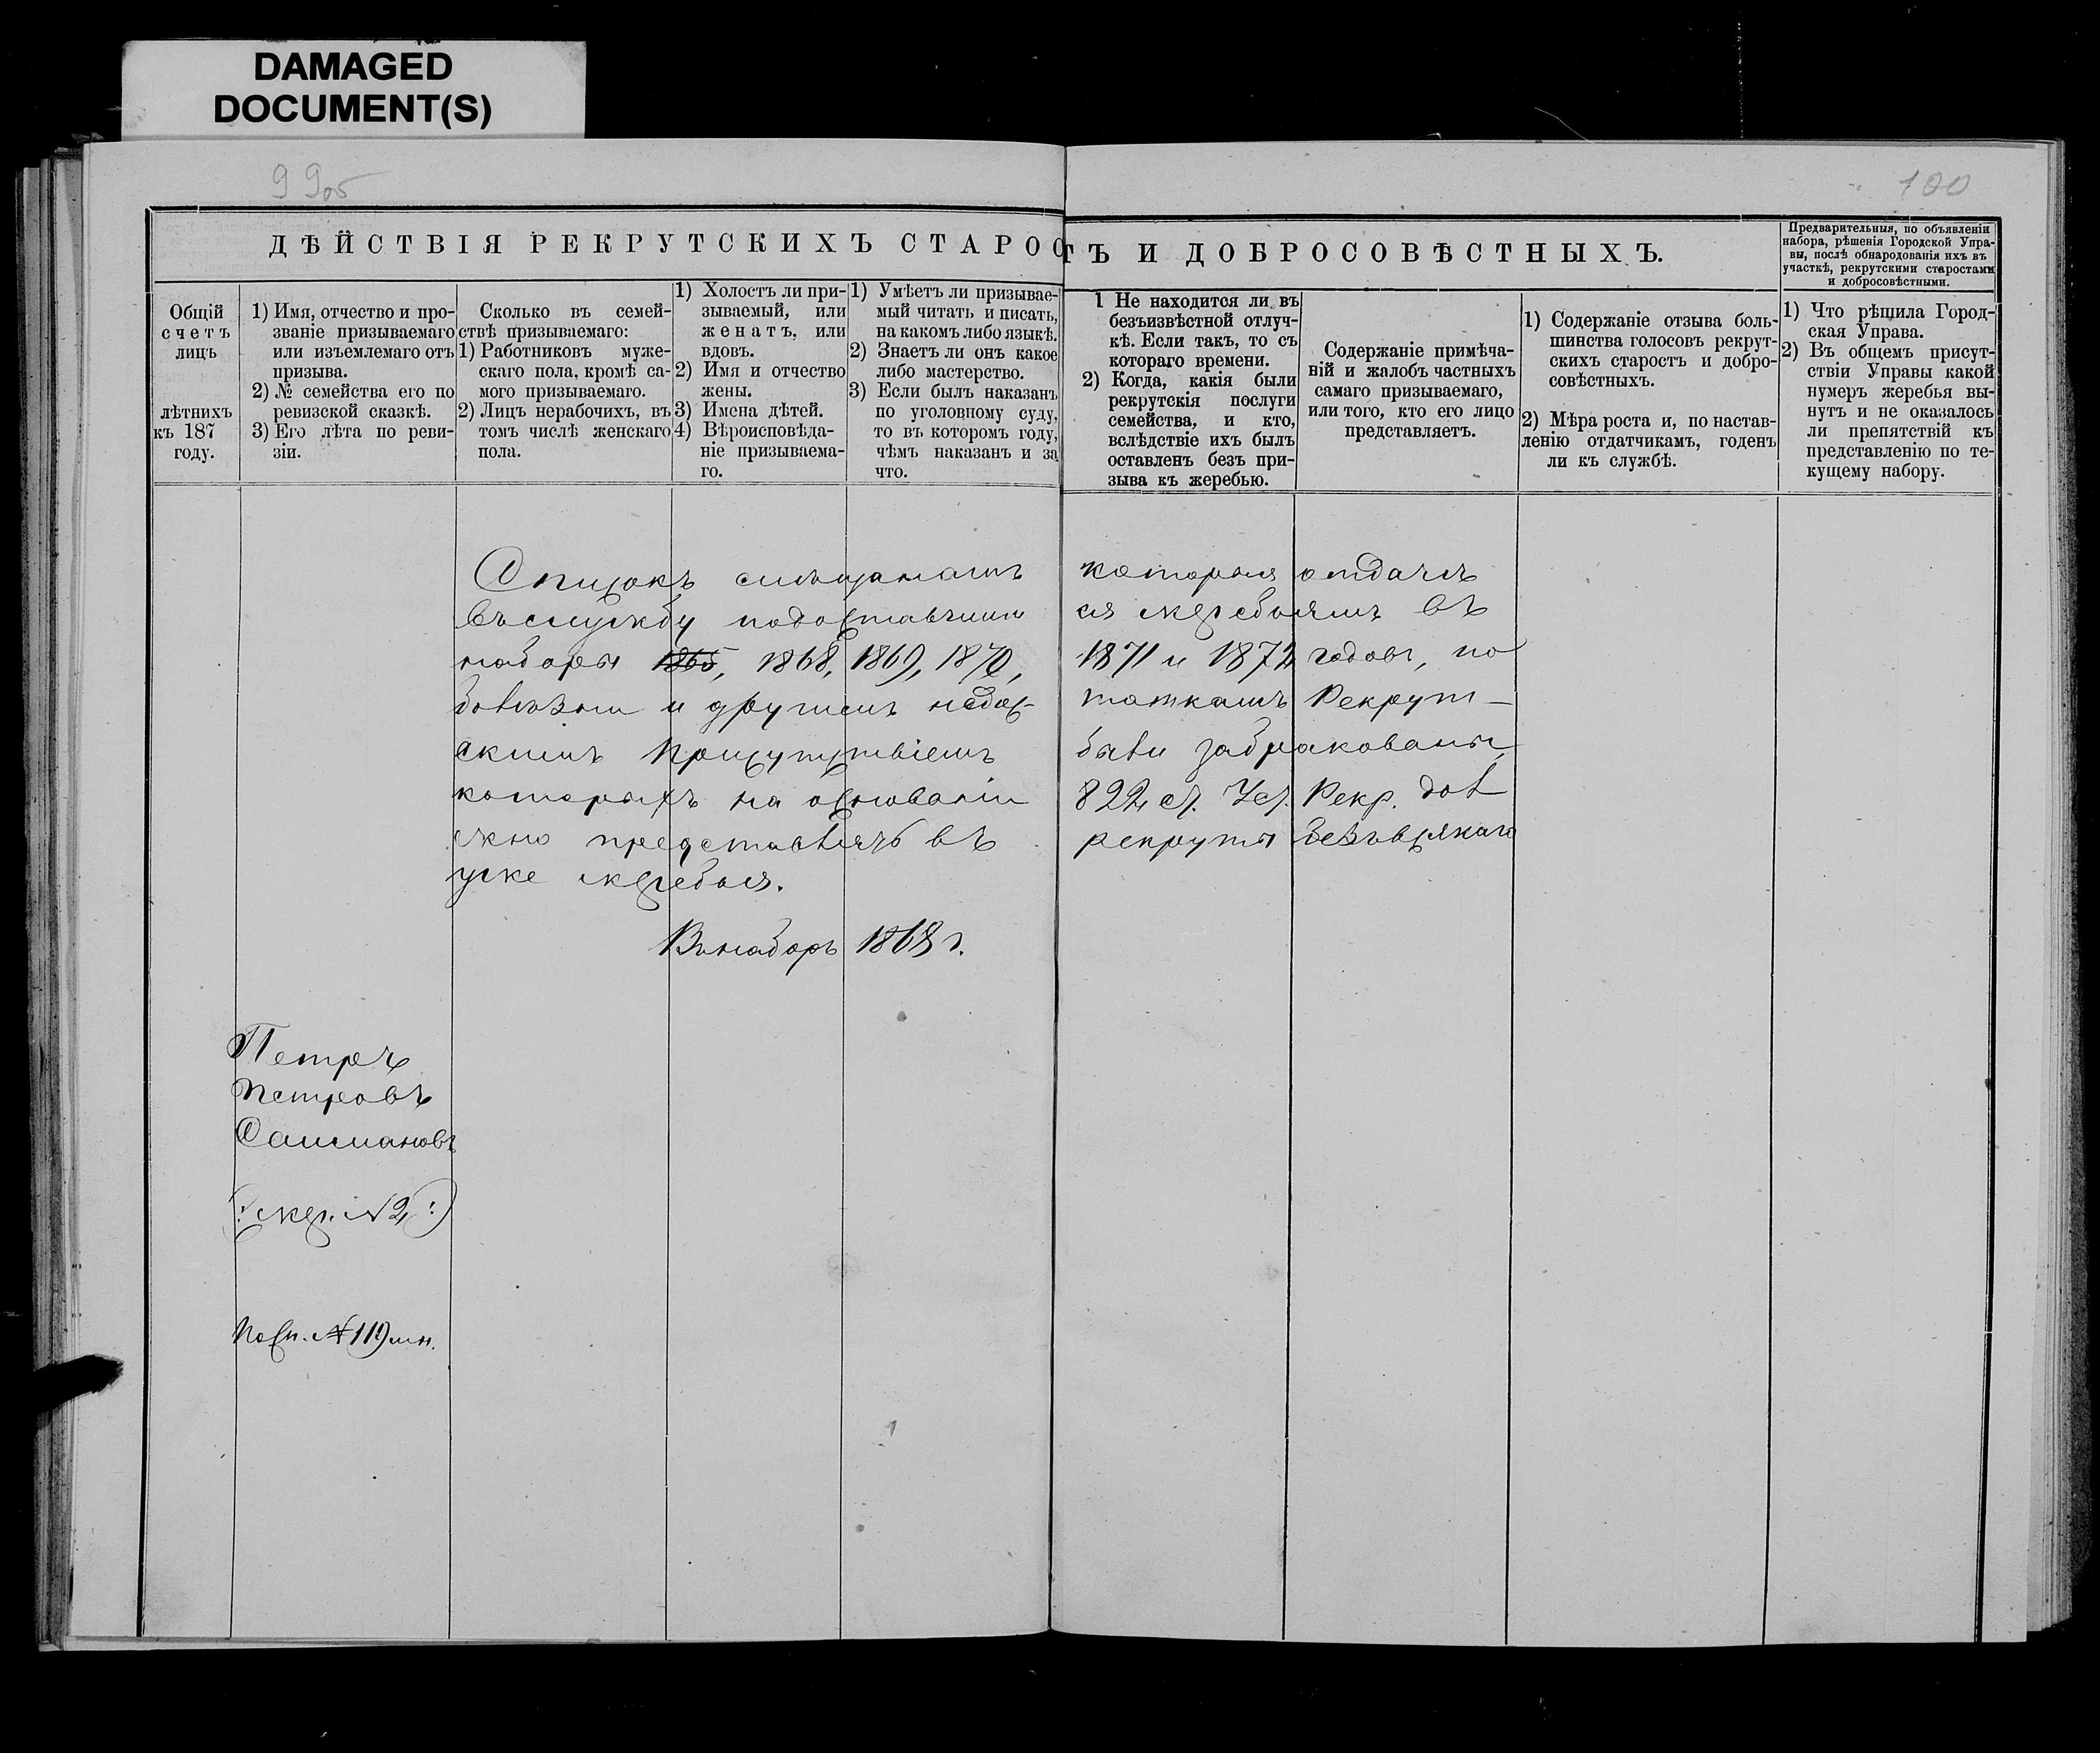 DAMAGED
DOCUMENT(S)
99 об
100
ДѢЙСТВІЯ РЕКРУТСКИХЪ СТАРОСТЪ И ДОБРОСОВѢСТНЫХЪ.
Предварительныя, по объявленіи
набора, рѣшенія Городской Упра-
вы, послѣ обнародованія ихъ въ
участкѣ, рекрутскими старостами
и добросовѣстными.
Общій
счетъ
лицъ
лѣтнихъ
къ 187
году.
1) Имя, отчество и про-
званіе призываемаго
или изъемлемаго отъ
призыва.
2) № семейства его по
ревизской сказкѣ.
3) Его лѣта по реви-
зіи.
Сколько въ семей-
ствѣ призываемаго:
1) Работниковъ муже-
скаго пола, кромѣ са-
мого призываемаго.
2) Лицъ нерабочихъ, въ
томъ числѣ женскаго
пола.
1) Холостъ ли при-
зываемый, или
женатъ, или
вдовъ.
2) Имя и отчество
жены.
3) Имена дѣтей.
4) Вѣроисповѣда-
ніе призываема-
го.
1) Умѣетъ ли призывае-
мый читать и писать,
на какомъ либо языкѣ.
2) Знаетъ ли онъ какое
либо мастерство.
3) Если былъ наказанъ
по уголовному суду,
то въ которомъ году,
чѣмъ наказанъ и за
что.
1 Не находится ли въ
безъизвѣстной отлуч-
кѣ. Если такъ, то съ
котораго времени.
2) Когда, какія были
рекрутскія послуги
семейства, и кто,
вслѣдствіе ихъ былъ
оставленъ безъ при-
зыва къ жеребью.
Содержаніе примѣча-
ній и жалобъ частныхъ
самаго призываемаго,
или того, кто его лицо
представляетъ.
1) Содержаніе отзыва боль-
шинства голосовъ рекрут-
скихъ старостъ и добро-
совѣстныхъ.
2) Мѣра роста и, по настав-
ленію отдатчикамъ, годенъ
ли къ службѣ.
1) Что рѣшила Город-
ская Управа.
2) Въ общемъ присут-
ствіи Управы какой
нумеръ жеребья вы-
нутъ и не оказалось
ли препятствій къ
представленію по те-
кущему набору.
Списокъ мѣщанамъ которыя отдачѣ
въ службу подоставшим ся жеребьямъ въ
наборы 1865, 1868, 1869, 1870, 1871 и 1872 годовъ, по
болѣзни и другимъ недос- таткамъ Рекрут-
скимъ Присутствіемъ были забракованы,
которыхъ на основаніи 822 ст. Уст. Рекр. дол
жно представлять въ рекруты безъ всякаго
уже жеребья.
Въ наборъ 1868 г.
Петръ
Петровъ
Сашмановъ
(: жер. № 2 :)
По сп. № 119 мн.